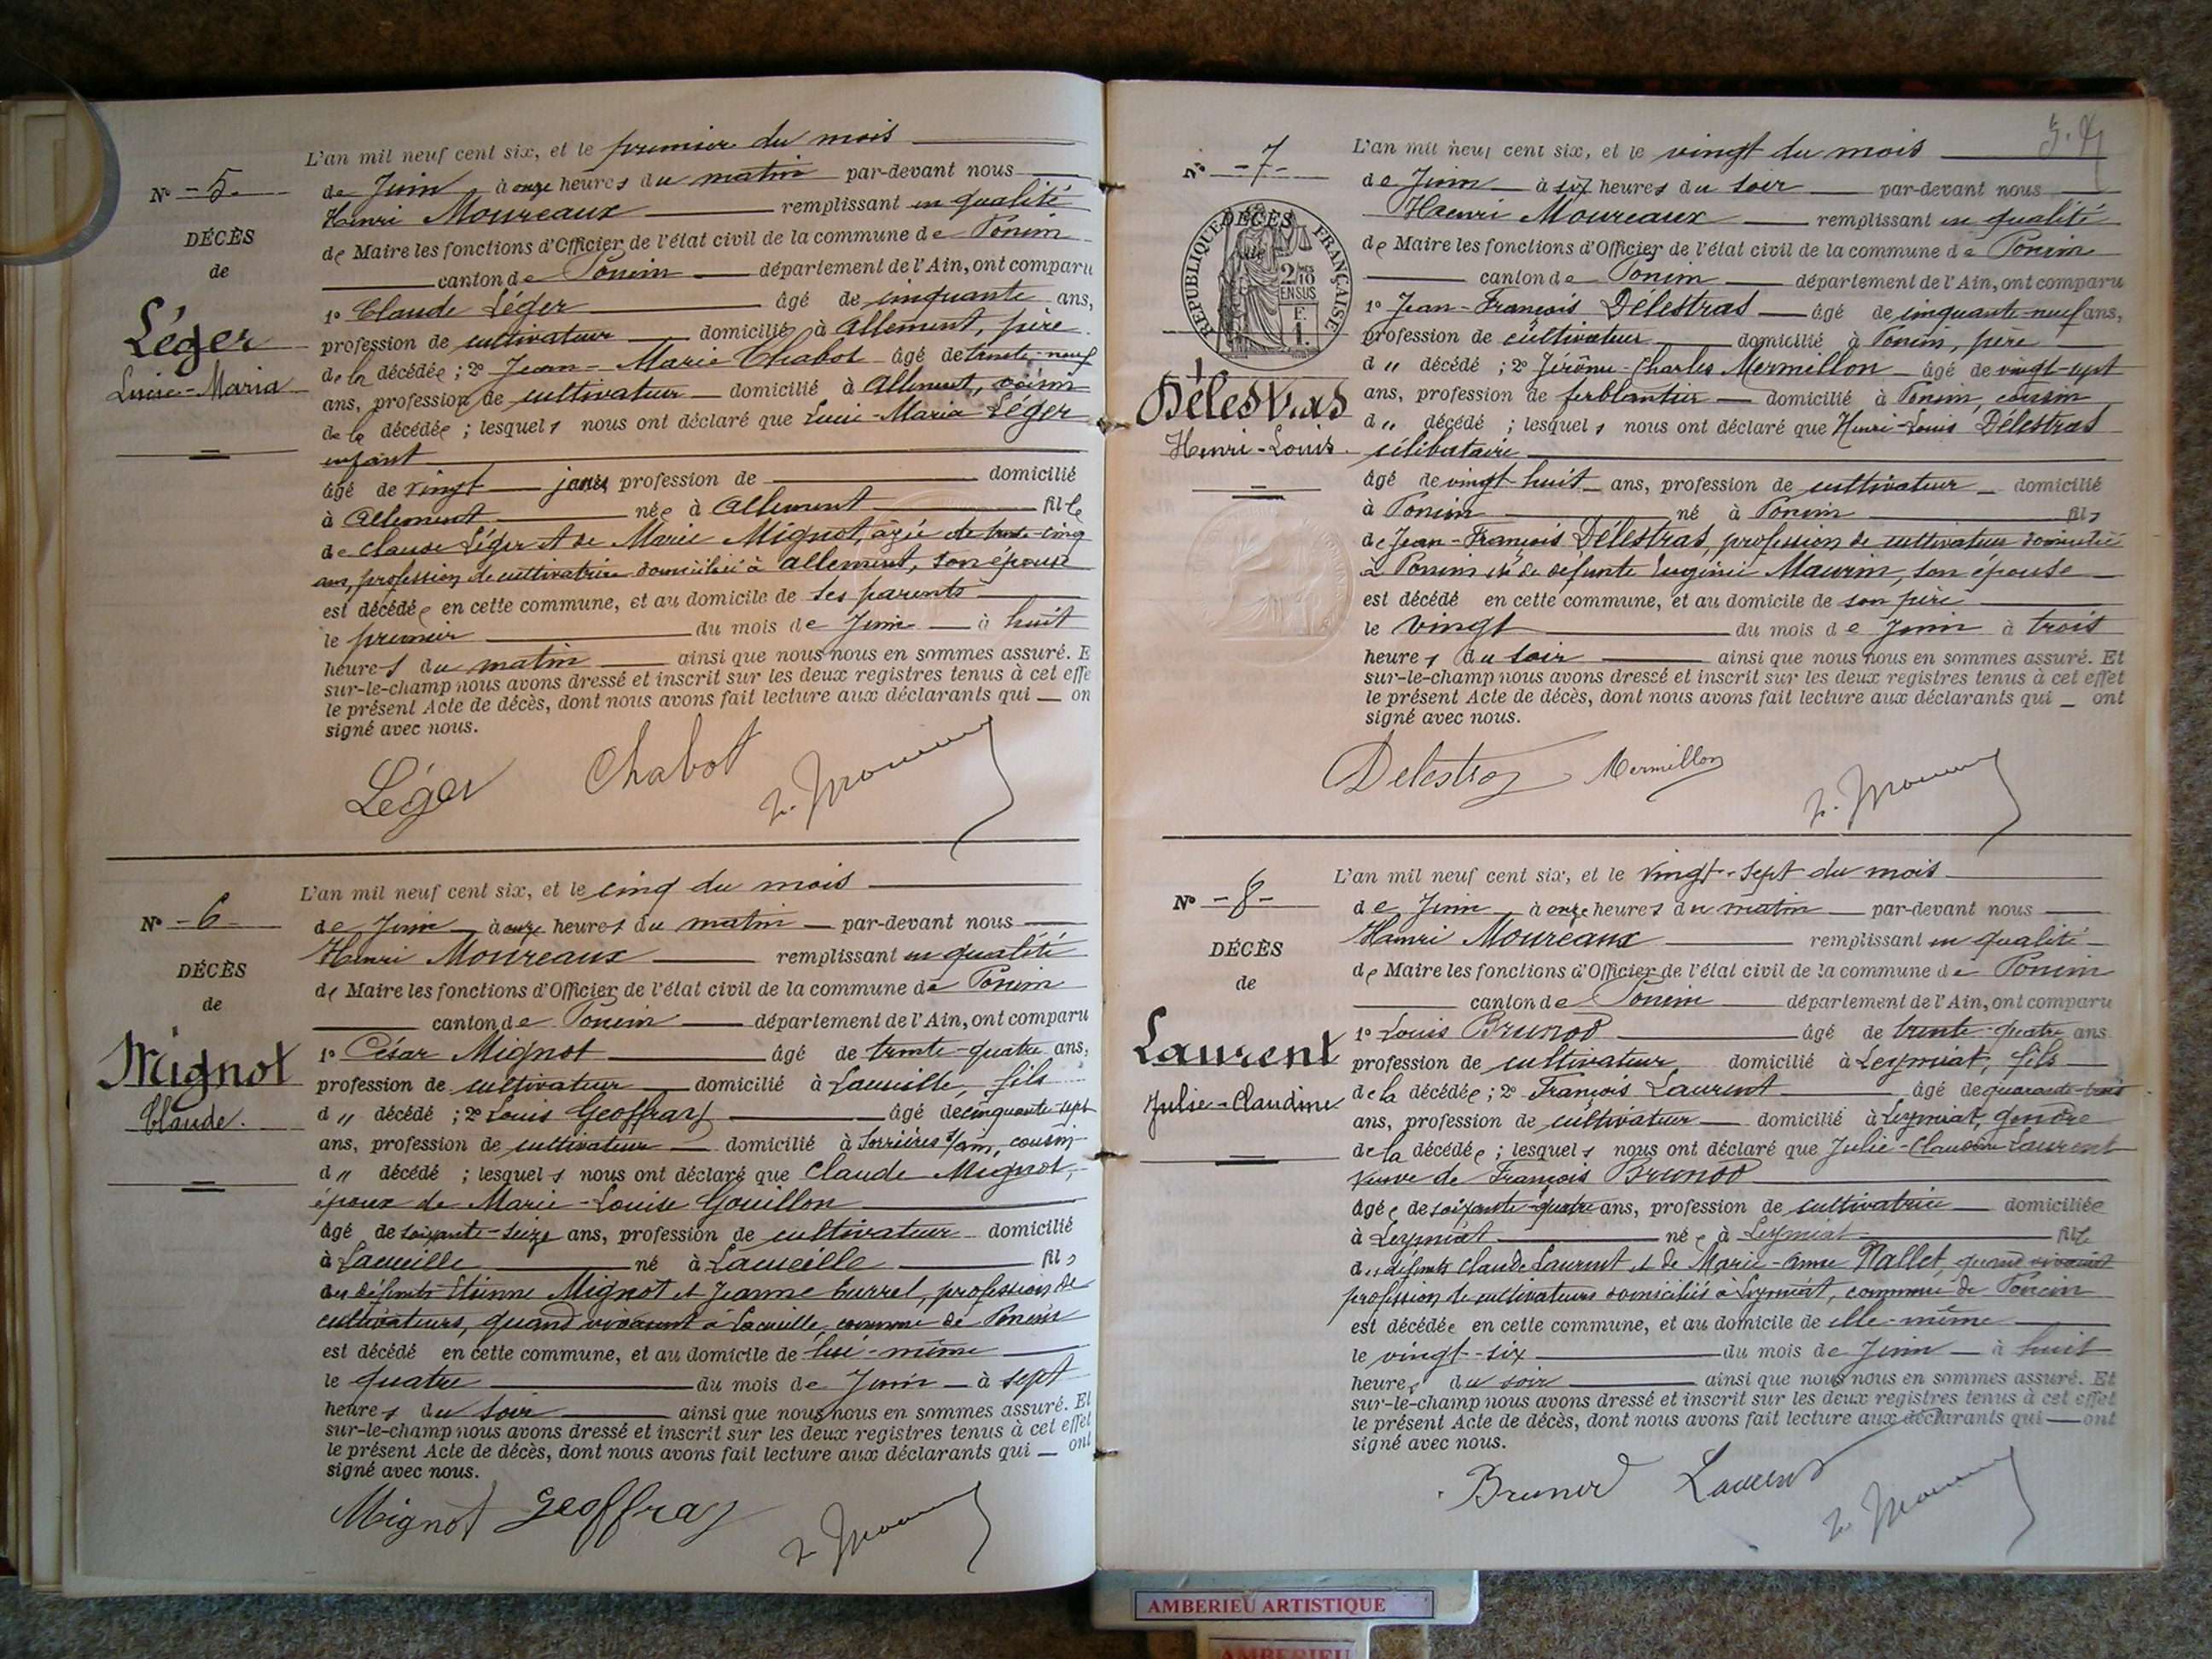 L'an mil neuf cent six, et le premier du mois
N° - 5 -
de Juin à onze heures du matin par-devant nous
Henri Moureaux remplissant en qualité
DÉCÈS
de Maire les fonctions d'Officier de l'état civil de la commune de Poncin
de
canton de Poncin département de l'Ain, ont comparu
1° Claude Léger âgé de cinquante ans,
Léger
profession de cultivateur domicilié à Allement, père
Lucie-Maria
de la décédée ; 2° Jean-Marie Chabot âgé de trente-neuf
ans, profession de cultivateur domicilié à Allement, voisin
de la décédée ; lesquels nous ont déclaré que Lucie-Maria Léger
enfant
âgé de vingt jours profession de domicilié
à Allement née à Allement fille
de Claude Léger et de Marie Mignot, âgée de trente-cinq
ans, profession de cultivatrice domiciliée à Allement, son épouse
est décédée en cette commune, et au domicile de ses parents
le premier du mois de Juin à huit
heures du matin ainsi que nous nous en sommes assuré. E
sur-le-champ nous avons dressé et inscrit sur les deux registres tenus à cet effe
le présent Acte de décès, dont nous avons fait lecture aux déclarants qui on
signé avec nous.
Léger Chabot
L'an mil neuf cent six, et le cinq du mois
N° - 6 -
de Juin à onze heures du matin par-devant nous
Henri Moureaux remplissant en qualité
DÉCÈS
de Maire les fonctions d'Officier de l'état civil de la commune de Poncin
de
canton de Poncin département de l'Ain, ont comparu
1° César Mignot âgé de trente-quatre ans,
Mignot
profession de cultivateur domicilié à Lacueille, fils
Claude.
d " décédé ; 2° Louis Geoffray âgé de cinquante-sept
ans, profession de cultivateur domicilié à Serrières s/Ain, cousin
d " décédé ; lesquels nous ont déclaré que Claude Mignot,
époux de Marie-Louise Gouillon
âgé de soixante-seize ans, profession de cultivateur domicilié
à Lacueille né à Lacueille fils
des défunts Etienne Mignot et Jeanne Curret, profession de
cultivateurs, quand vivaient à Lacueille, commune de Poncin
est décédé en cette commune, et au domicile de lui-même
le quatre du mois de Juin à sept
heures du soir ainsi que nous nous en sommes assuré. Et
sur-le-champ nous avons dressé et inscrit sur les deux registres tenus à cet effet
le présent Acte de décès, dont nous avons fait lecture aux déclarants qui ont
signé avec nous.
Mignot Geoffray
L'an mil neuf cent six, et le vingt du mois
N° - 7 -
de Juin à six heures du soir par-devant nous
Henri Moureaux remplissant en qualité
DÉCÈS
RÉPUBLIQUE FRANÇAISE
2/10 EN SUS
F. 1.
de Maire les fonctions d'Officier de l'état civil de la commune de Poncin
canton de Poncin département de l'Ain, ont comparu
1° Jean-François Délestras âgé de cinquante-neuf ans,
profession de cultivateur domicilié à Poncin, père
d " décédé ; 2° Jérôme-Charles Mermillon âgé de vingt-sept
Délestras
ans, profession de ferblantier domicilié à Poncin, cousin
d " décédé ; lesquels nous ont déclaré que Henri-Louis Délestras
Henri-Louis.
célibataire
âgé de vingt-huit ans, profession de cultivateur domicilié
à Poncin né à Poncin fils
de Jean-François Délestras, profession de cultivateur domicilié
à Poncin et de défunte Eugénie Maurin, son épouse
est décédé en cette commune, et au domicile de son père
le vingt du mois de Juin à trois
heures du soir ainsi que nous nous en sommes assuré. Et
sur-le-champ nous avons dressé et inscrit sur les deux registres tenus à cet effet
le présent Acte de décès, dont nous avons fait lecture aux déclarants qui ont
signé avec nous.
Delestraz Mermillon
L'an mil neuf cent six, et le vingt-sept du mois
N° - 8 -
de Juin à onze heures du matin par-devant nous
Henri Moureaux remplissant en qualité
DÉCÈS
de Maire les fonctions d'Officier de l'état civil de la commune de Poncin
de
canton de Poncin département de l'Ain, ont comparu
1° Louis Brunod âgé de trente-quatre ans
Laurent
profession de cultivateur domicilié à Leymiat, fils
Julie-Claudine
de la décédée ; 2° François Laurent âgé de quarante-trois
ans, profession de cultivateur domicilié à Leymiat, gendre
de la décédée ; lesquels nous ont déclaré que Julie-Claudine Laurent
veuve de François Brunod
âgée de soixante-quatre ans, profession de cultivatrice domiciliée
à Leymiat née à Leymiat fille
des défunts Claude Laurent et de Marie-Anne Nallet, quand vivaient
profession de cultivateurs domiciliés à Leymiat, commune de Poncin
est décédée en cette commune, et au domicile de elle-même
le vingt-six du mois de Juin à huit
heures du soir ainsi que nous nous en sommes assuré. Et
sur-le-champ nous avons dressé et inscrit sur les deux registres tenus à cet effet
le présent Acte de décès, dont nous avons fait lecture aux déclarants qui ont
signé avec nous.
Brunod Laurent
AMBERIEU ARTISTIQUE
AMBERIEU